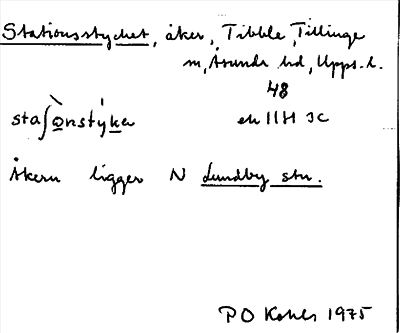 Stationsstycket, åker, Tibble, Tillinge
sn, Åsunda hd, Upps. l.
48
staʃo̲nstýk̲a ek 11H 3c
Åkern ligger N Lundby stn.
P O 1975